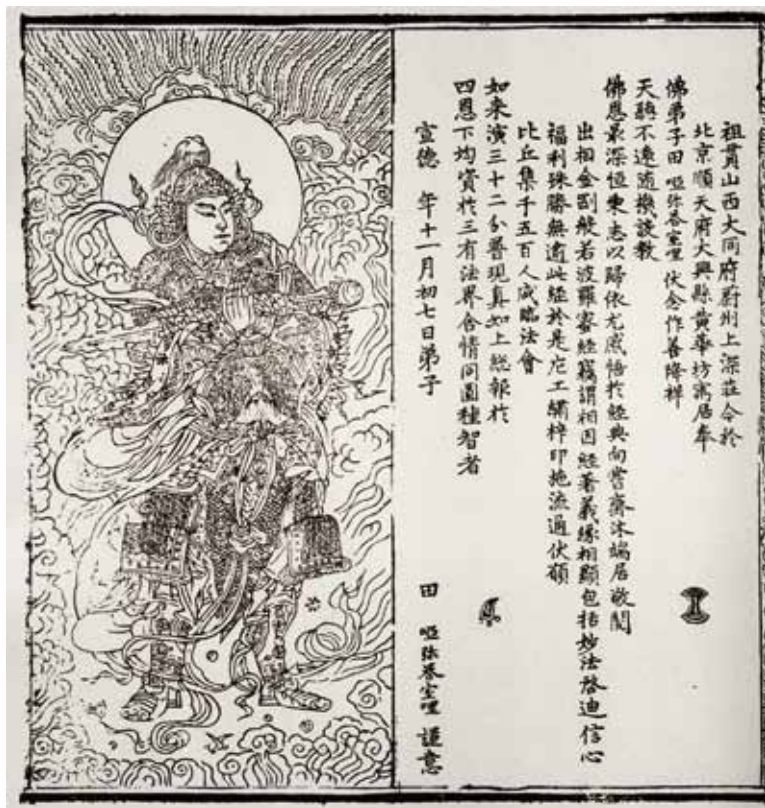 祖貫山西大同府蔚州上深莊今於
北京順天府大興縣黃華坊寓居奉
佛弟子田 啞弥荅室哩 伏念作善隆祥
天聽不遠隨機設教
佛恩最深恒秉志以歸依尤感悟於經典向嘗齋沐端居敬閱
出相金剛般若波羅蜜經竊謂相因經著義緣相顯包括妙法啓迪信心
福利殊勝無逾此經於是庀工繡梓印施流通伏願
比丘集千五百人咸臨法會
如来演三十二分普現真如上緫報於
四恩下均資於三有法界含情同圓種智者
宣德 年十一月初七日弟子 田 啞弥荅室哩 謹意